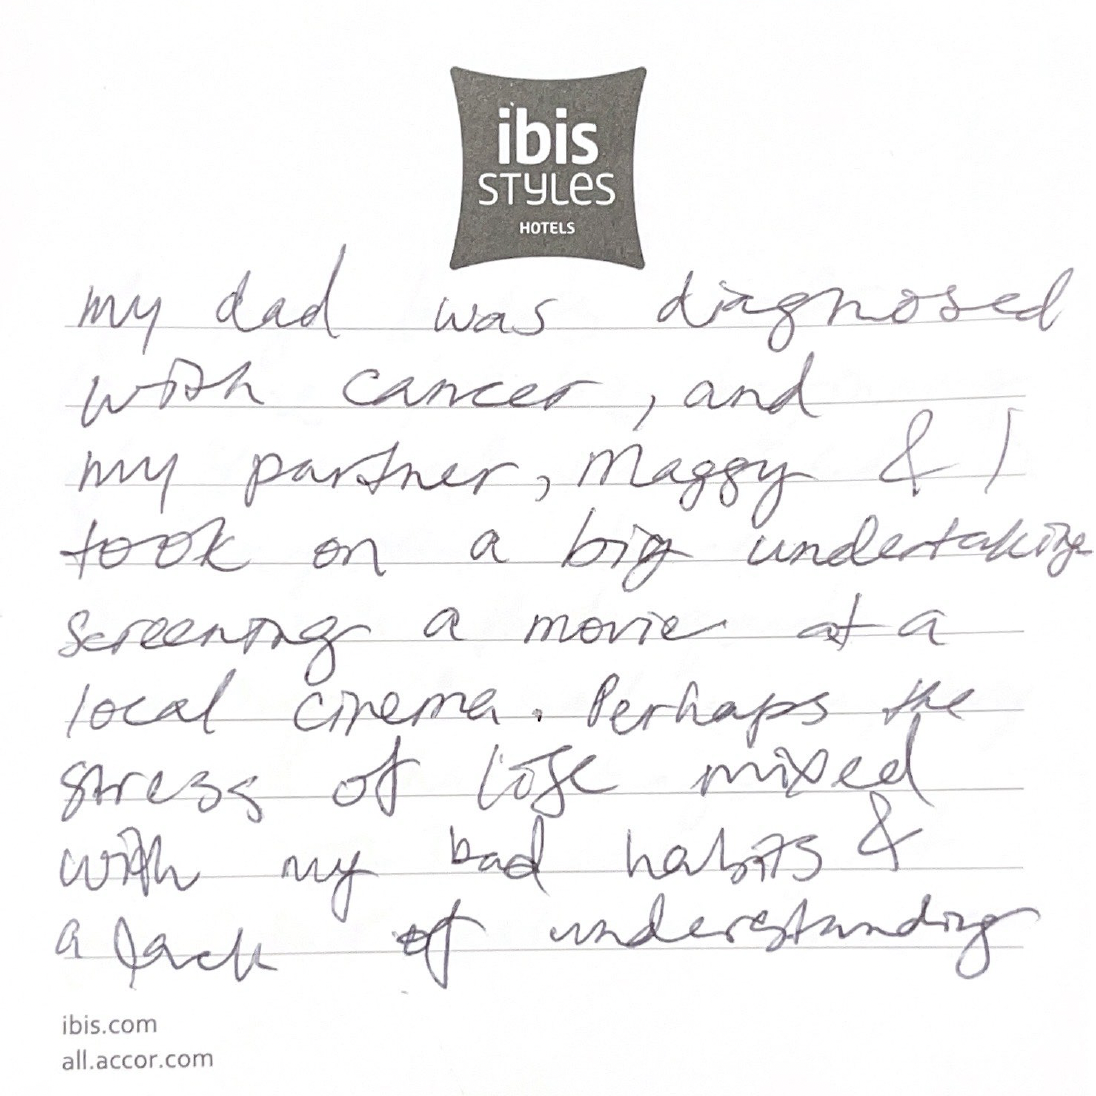 ibis
STYLES
HOTELS
my dad was diagnosed
with cancer, and
my partner, Maggy & I
took on a big undertaking
screening a movie at a
local cinema. Perhaps the
stress of life mixed
with my bad habits &
a lack of understanding
ibis.com
all.accor.com